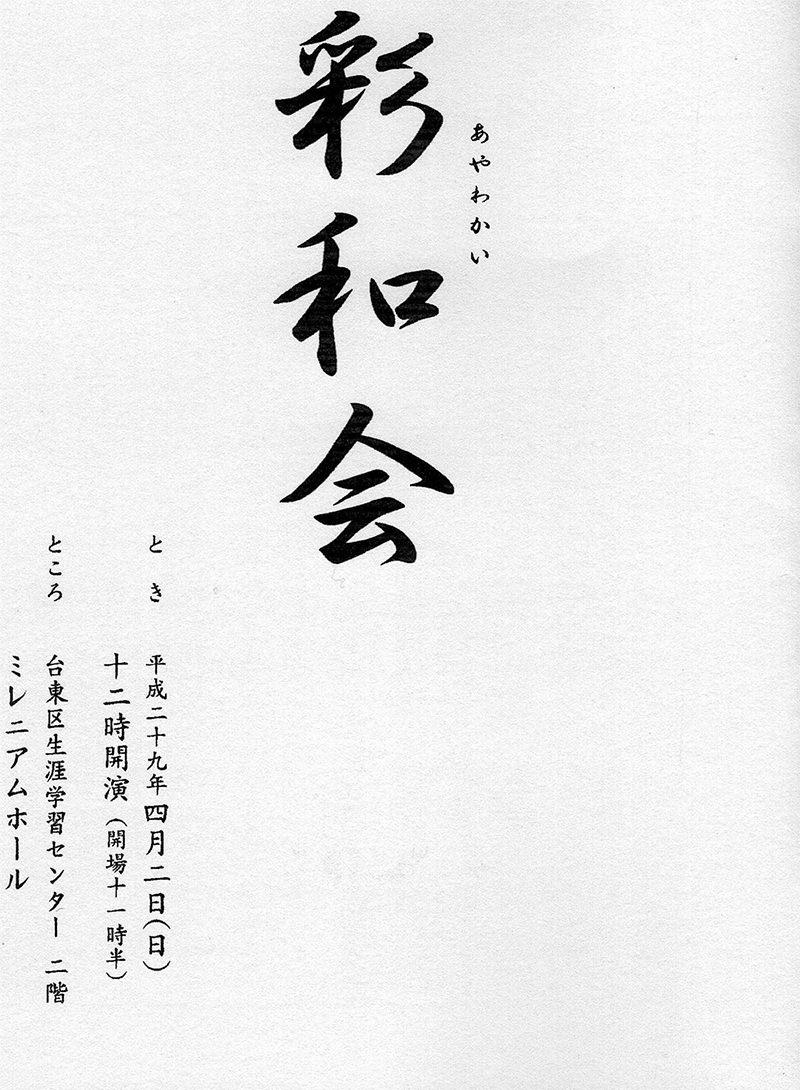 あやわかい
彩和会
とき　平成二十九年四月二日(日)
十二時開演(開場十一時半)
ところ　台東区生涯学習センター 二階
ミレニアムホール